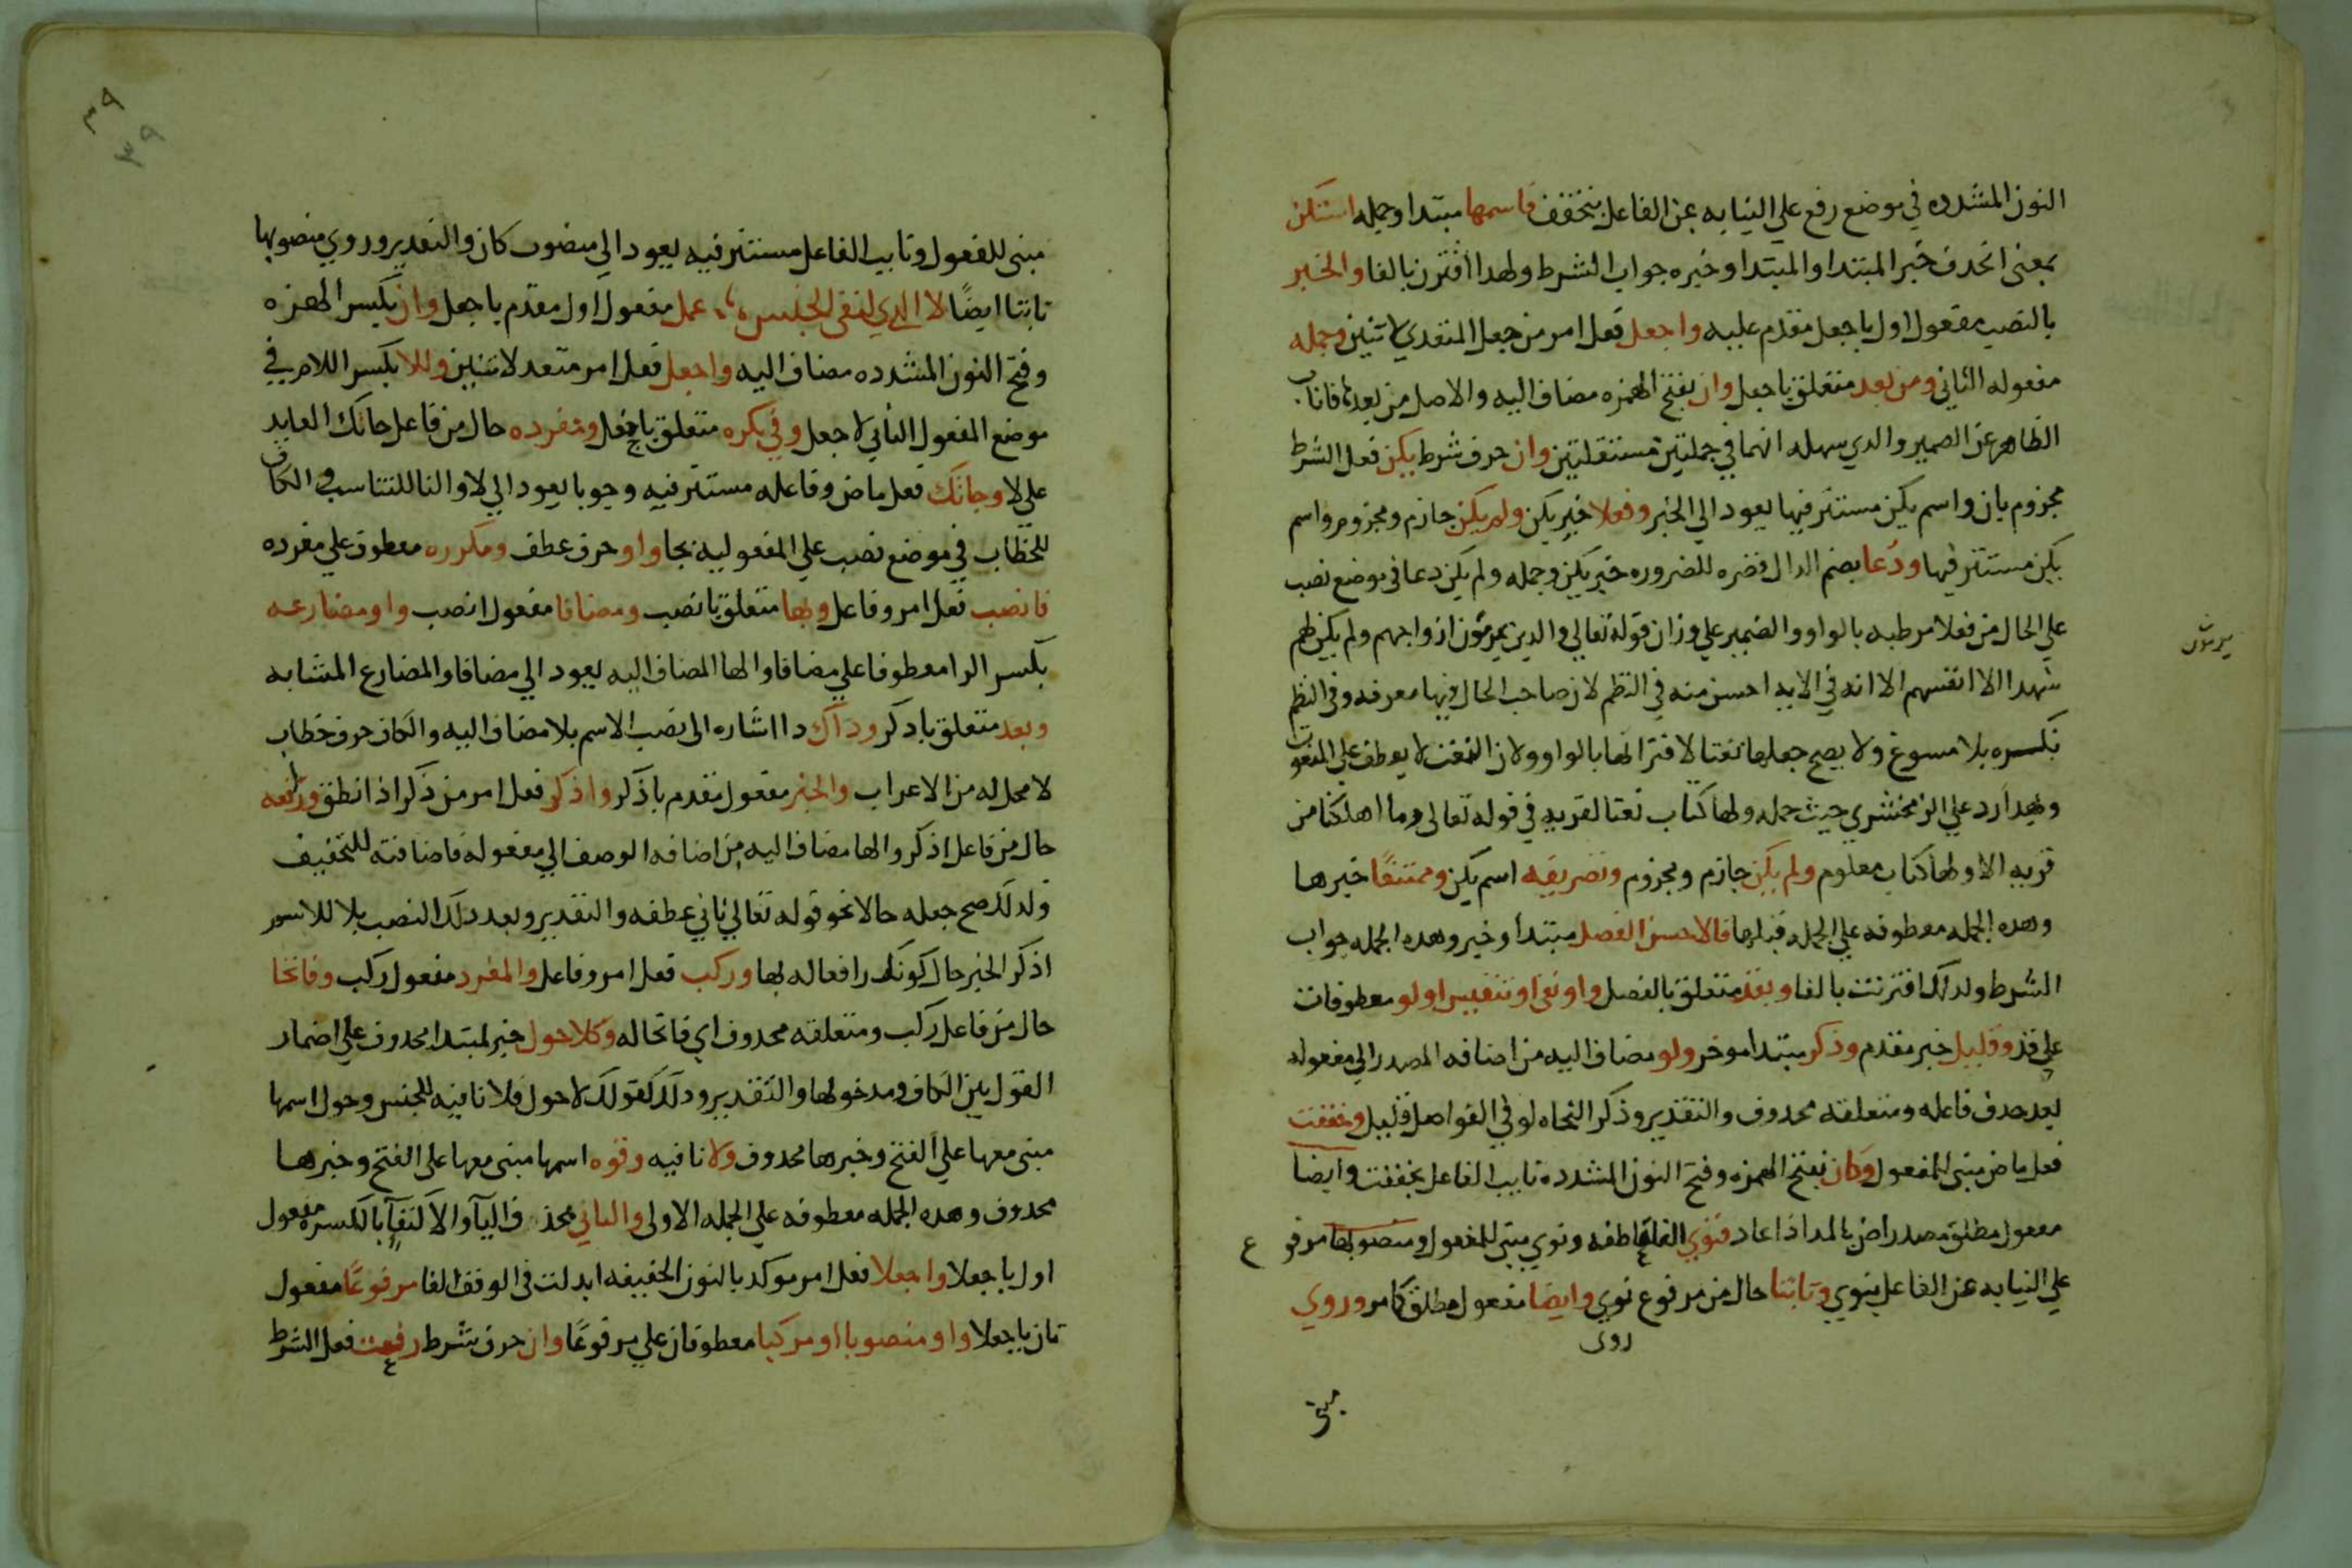 النون المشدده في موضع رفع علي النيابه عن الفاعل بتخفف فاسمها مبتدا وجمله استكن
بمعنى انحدف خبر المبتدا والمبتدا وخبره جواب الشرط ولهدا اقترن بالفا والخبر
بالنصب مفعول اول باجعل مقدم عليه واجعل فعل امر من جعل المتعدي لاثنين وجمله
مفعوله الثاني ومن بعد متعلق باجعل وان بفتح الهمزه مضاف اليه والاصل من بعدها فاناب
الظاهر عن الضمير والدي سهله انهما في جملتين مستقلتين وان حرف شرط يكن فعل الشرط
مجزوم بان واسم يكن مستتر فيها يعود الي الخبر وفعلا خبر يكن ولم يكن جازم ومجزوم واسم
يكن مستتر فيها ودُعا بضم الدال قصره للضروره خبر يكن وجمله ولم يكن دعا في موضع نصب
علي الحال من فعلا مرطبه بالواو والضمير علي وزان قوله تعالي والدين يرمون ازواجهم ولم يكن لهم
شهدا الا انفسهم الا انه في الايه احسن منه في النظم لان صاحب الحال فيها معرفه وفي النظم
نكسره بلا مسوغ ولا يصح جعلها نعتا لاقترانها بالواو ولان النعت لا يعطف علي المنعوت
وبهدا رد علي الزمخشري حيث جمله ولها كتاب نعتا لقريه في قوله تعالى وما اهلكنا من
قريه الا ولها كتاب معلوم ولم يكن جازم ومجزوم وتصريفه اسم يكن وممتنعًا خبرها
وهده الجمله معطوفه علي الجمله قبلها فالاحسن الفصل مبتدأ وخبر وهده الجمله جواب
الشرط ولدلك اقترنت بالفا وبقد متعلق بالفصل واو نفي او تنفيس او لو معطوفات
علي قد وقليل خبر مقدم وذكر مبتدا موخر ولو مضاف اليه من اضافه المصدر الي مفعوله
بعد حدف فاعله ومتعلقه محدوف والتقدير وذكر النحاه لو في الفواصل قليل وخففت
فعل ماض مبنى للمفعول وكان بفتح الهمزه وفتح النون المشدده نايب الفاعل بخففت وايضا
مفعول مطلق مصدر اض بالمد اذا عاد فنوي الفا عاطفه ونوي مبني للمفعول ومنصوبها مرفوع
علي النيابه عن الفاعل بنوي وثابتا حال من مرفوع نوي وايضا مفعول مطلق كما مر وروي
روى
مبنى
يرمون
٣٩
٣٩
مبنى للمفعول ونايب الفاعل مستتر فيه يعود الي منصوب كان والتقدير وروي منصوبها
ثابتا ايضًا لا التي لنفي الجنس عمل مفعول اول مقدم باجعل وان بكسر الهمزه
وفتح النون المشدده مضاف اليه واجعل فعل امر متعد لاثنين وللا بكسر اللام في
موضع المفعول الثاني لاجعل وفي نكره متعلق باجعل ومفرده حال من فاعل جاتك العايد
علي لا وجاتك فعل ماض وفاعله مستتر فيه وجوبا يعود الي لا والتا للتانيث والكاف
للخطاب في موضع نصب علي المفعوليه بجا واو حرف عطف ومكرره معطوف علي مفرده
فانصب فعل امر وفاعل وبها متعلق بانصب ومضافا مفعول انصب واو مضارعه
بكسر الرا معطوف علي مضافا والها المضاف اليه يعود الي مضافا والمضارع المشابه
وبعد متعلق بادكر وداك دا اشاره الى نصب الاسم بلا مضاف اليه والكاف حرف خطاب
لا محل له من الاعراب والخبر مفعول مقدم باذكر واذكر فعل امر من ذكر اذا نطق ورافعه
حال من فاعل اذكر والها مضاف اليه من اضافه الوصف الي مفعوله فاضافته للتخفيف
ولدلك صح جعله حالا نحو قوله تعالي ثاني عطفه والتقدير وبعد دلك النصب بلا للاسم
اذكر الخبر حال كونك رافعا له بها وركب فعل امر وفاعل والمفرد مفعول ركب وفاتحا
حال من فاعل ركب ومتعلقه محدوف اي فاتحا له وكلا حول خبر لمبتدا محدوف علي اضمار
القول بين الكاف ومدخولها والتقدير ودلك كقولك لا حول فلا نافيه للجنس وحول اسمها
مبنى معها علي الفتح وخبرها محدوف ولا نافيه وقوه اسمها مبنى معها على الفتح وخبرها
محدوف وهده الجمله معطوفه علي الجمله الاولى والثاني بحذف اليا والاكتفا بالكسره مفعول
اول باجعلا واجعلا فعل امر موكد بالنون الخفيفه ابدلت في الوقف الفا مرفوعًا مفعول
ثان باجعلا واو منصوبا او مركبا معطوفان علي مرفوعًا وان حرف شرط رفعت فعل الشرط